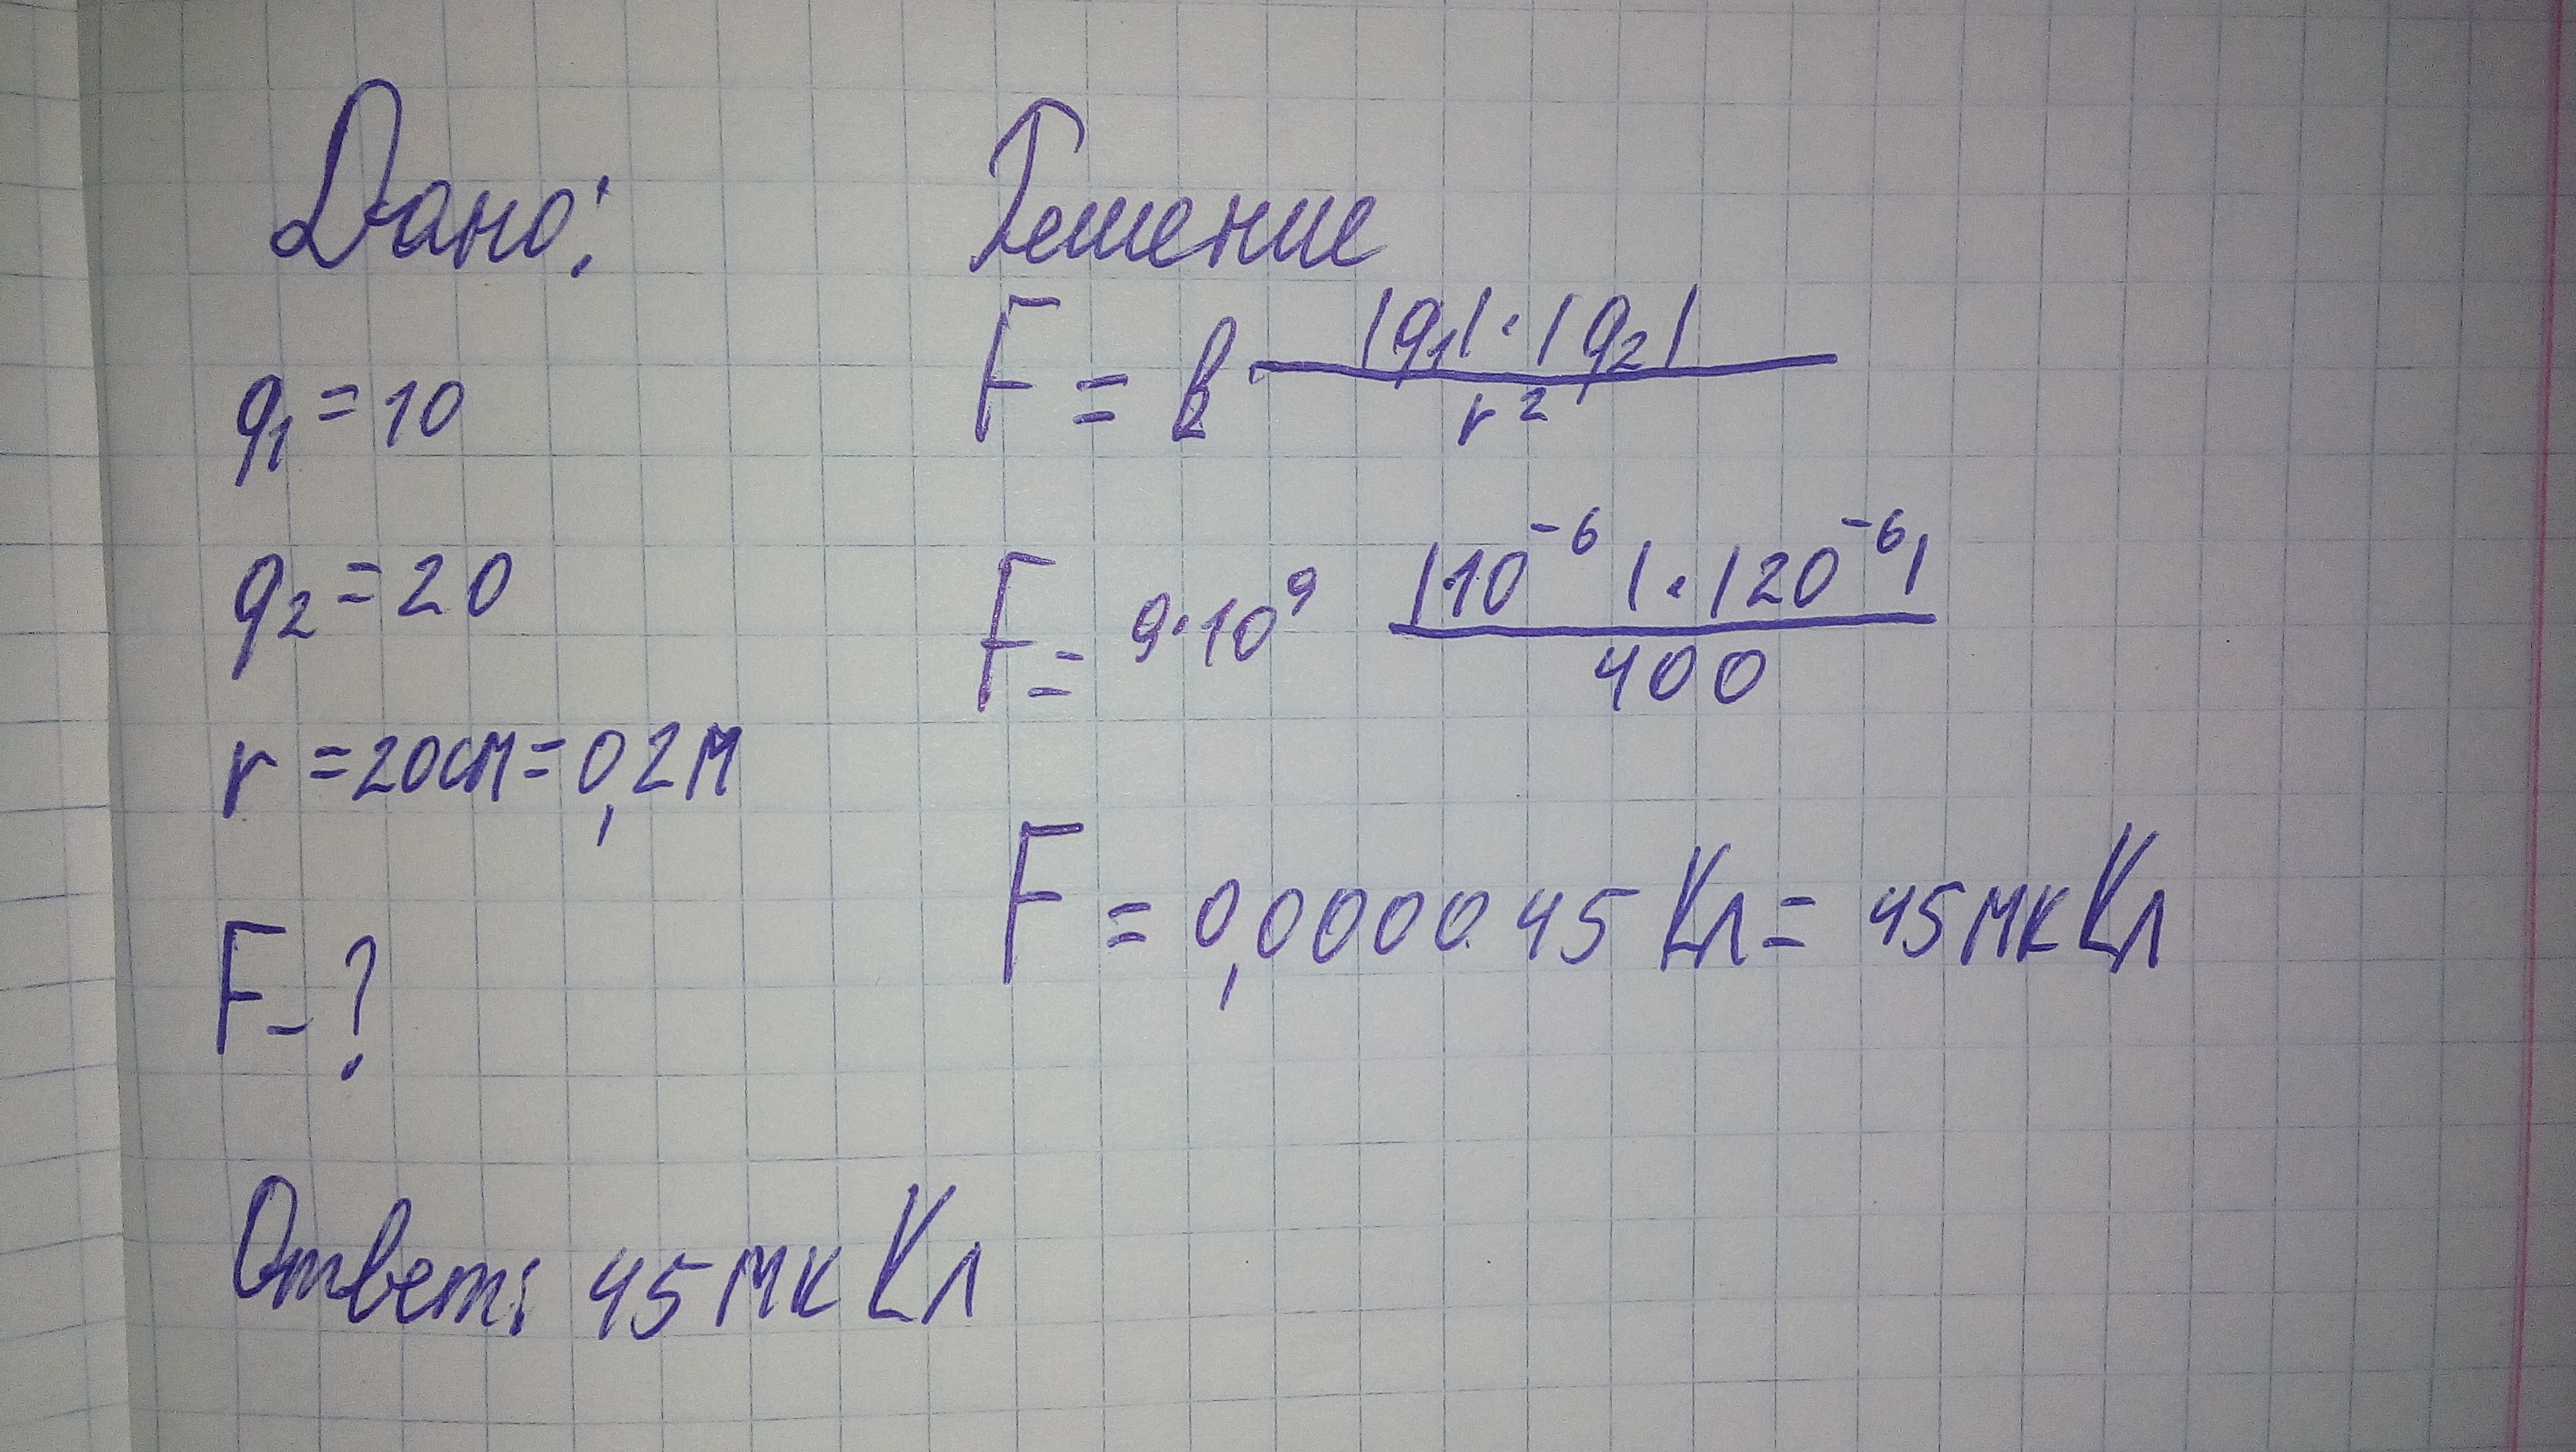 Дано:
q₁ = 10
q₂ = 20
r = 20см = 0,2м
F - ?
Решение
F = k · |q₁| · |q₂| / r²
F = 9·10⁹ |10⁻⁶| · |20⁻⁶| / 400
F = 0,000045 Кл = 45 мк Кл
Ответ: 45 мк Кл